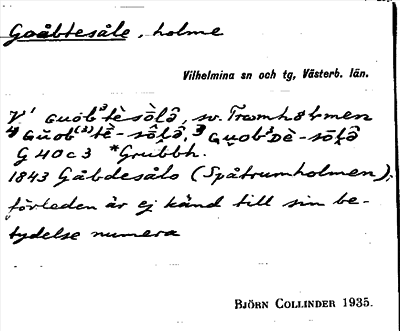 Goåbtesåle, holme
Vilhelmina sn och tg, Västerb. län.
V¹ guob³tèsò̄lə̑, sv. Tromholmen
⁴ Gŭob⁽²⁾tè-sō̭lə̑, ³ Gu̯ob²Dè-sō̭lə̑
G 40 c 3 *Grubbh.
1843 Gåbdesålo (Spåtrumholmen);
förleden är ej känd till sin be-
tydelse numera
BJÖRN COLLINDER 1935.